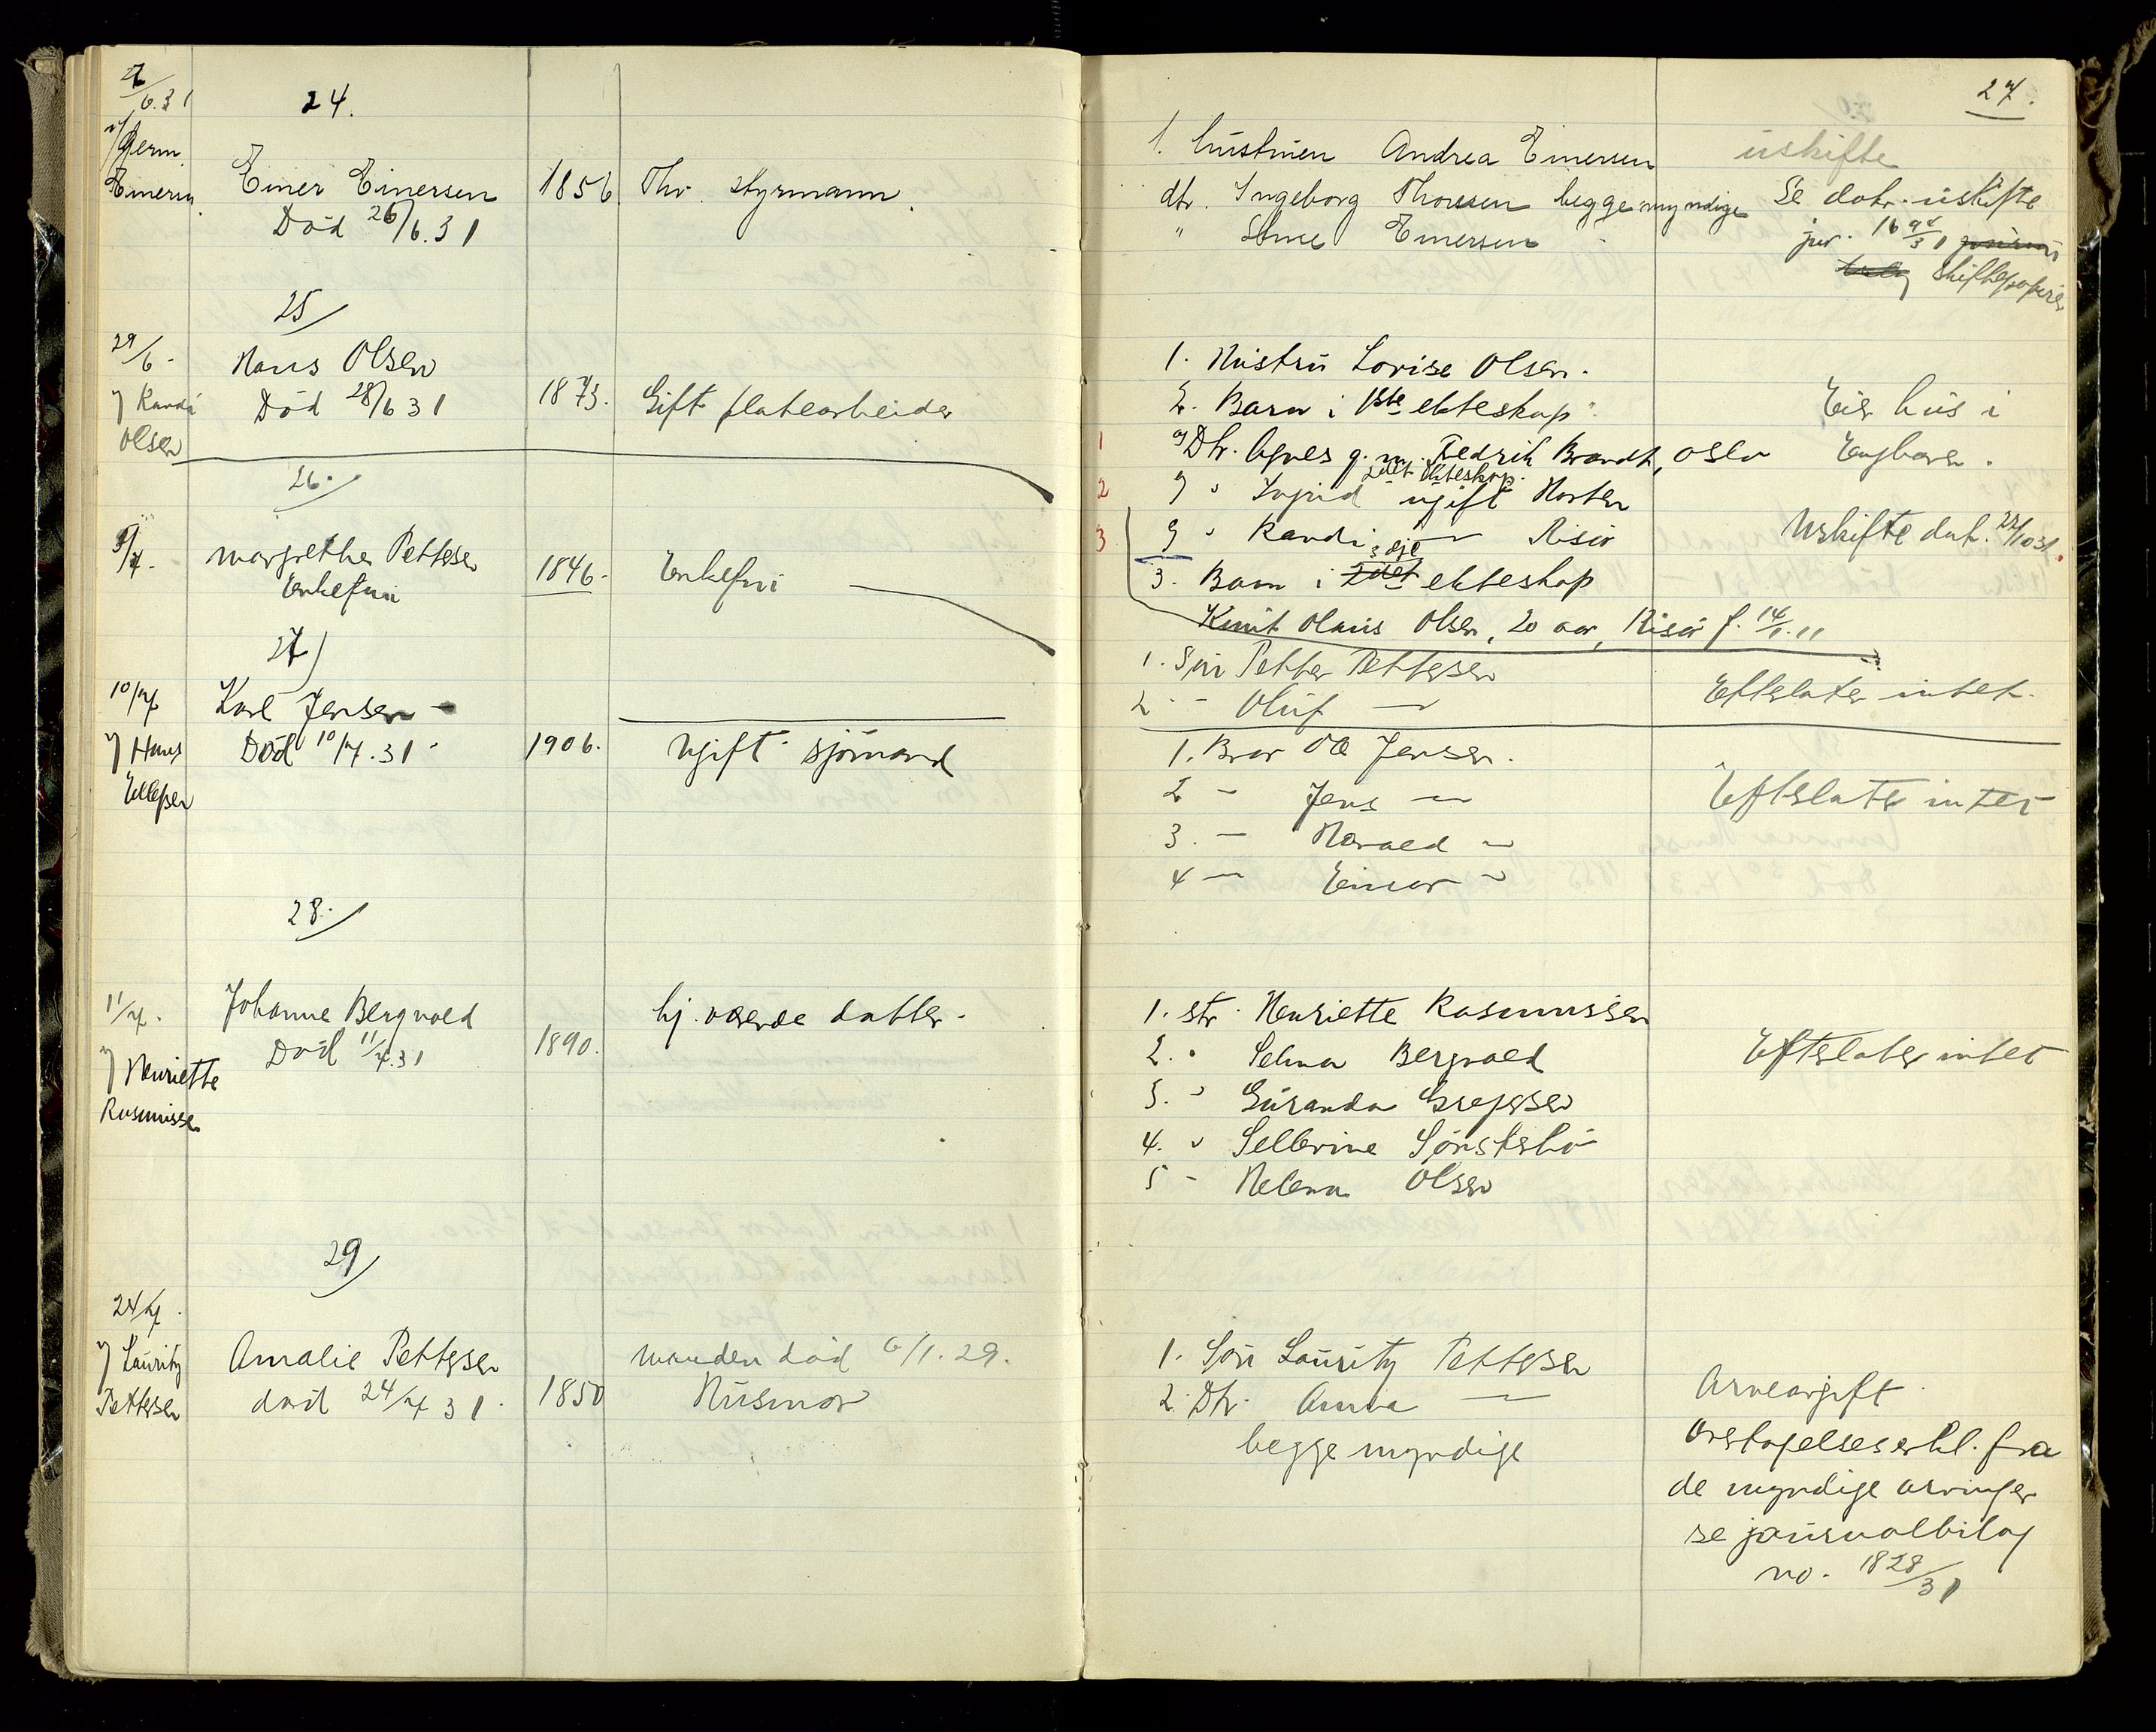 27.
27/6.31
24.
v/Herm.
Einersen
Einer Einersen
Död 26/6.31
1856
Fhv. styrmann.
1. hustruen Andrea Einersen
dtr. Ingeborg Thorsen begge myndige
" Einersen
uskifte
Se dok. uskifte
jur. 1698/31
skiftepapirer
25/
29/6.
v/ Randi
Olsen
Hans Olsen
Död 28/6 31
1873.
Gift platearbeider
1. Hustru Lovise Olsen.
2. Barn i 1ste ekteskap.
1 a) Dtr. Agnes g. m. Fredrik Brandt, Oslo
2det ekteskap.
2 " Ingrid ugift Horten
3 " Randi — Risör
3dje
3. Barn i 2det ekteskap
Knut Olaus Olsen, 20 aar, Risör f. 14/1.11
Eier hus i
Enghaven.
Uskifte dat. 22/10 31.
26./
8/7.
Margrethe Pettersen
Enkefru
1846.
Enkefru
1. Sön Petter Pettersen
2 - Oluf —
Efterlater intet.
27/
10/7
v/ Hans
Ellefsen
Karl Jensen -
Död 10/7.31
1906.
Ugift sjömand
1. Bror Ole Jensen.
2 - Jens —
3. - Harald —
4 - Einar —
Efterlater intet
28./
11/7.
v/ Henriette
Rasmussen
Johanne Bergvald
Död 11/7.31
1890.
hj. værende datter.
1. str. Henriette Rasmussen
2. " Selma Bergvald
3. " Guranda Gregersen
4. " Sellerine Sönstebö
5 - Helena Olsen
Efterlater intet
29/
24/7.
v/ Lauritz
Pettersen
Amalie Pettersen
död 24/7 31.
1850
manden död 6/1.29.
Husmor
1. Sön Lauritz Pettersen
2. Dtr. Anna —
begge myndige
Arveavgift
Overtagelseserkl. fra
de myndige arvinger
se journalbilag
no. 1828/31